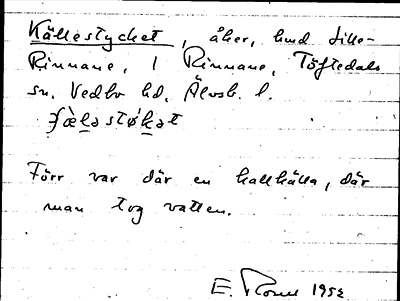 Källestycket, åker, hmd Lille-
Rinnane, 1 Rinnane, Töftedals
sn. Vedbo hd. Älvsb. l.
Förr var där en kallkälla, där
man tog vatten.
E. 1952